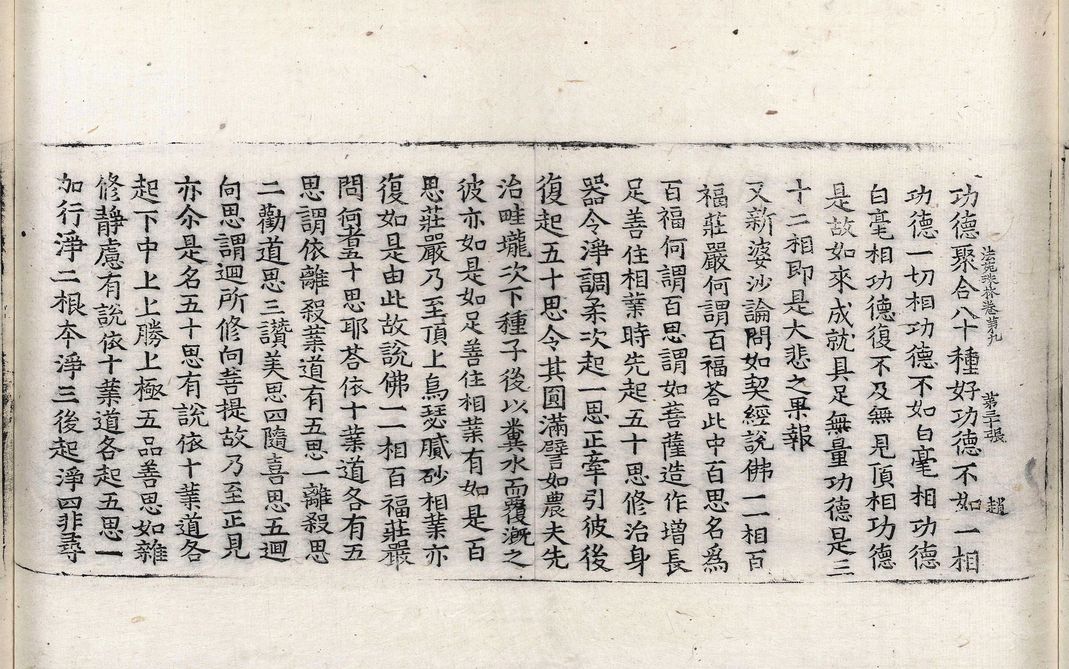 功德聚合八十種好功德不如一相
法苑珠林卷第九 第三十張 趙
功德一切相功德不如白毫相功德
白毫相功德復不及無見頂相功德
是故如來成就具足無量功德是三
十二相即是大悲之果報
又新婆沙論問如契經說佛一一相百
福莊嚴何謂百福荅此中百思名爲
百福何謂百思謂如菩薩造作增長
足善住相業時先起五十思修治身
器令淨調柔次起一思正牽引彼後
復起五十思令其圓滿譬如農夫先
治畦壠次下種子後以糞水而覆漑之
彼亦如是如足善住相業有如是百
思莊嚴乃至頂上烏瑟膩砂相業亦
復如是由此故說佛一一相百福莊嚴
問何者五十思耶荅依十業道各有五
思謂依離殺業道有五思一離殺思
二勸道思三讚美思四隨喜思五迴
向思謂迴所修向菩提故乃至正見
亦尒是名五十思有說依十業道各
起下中上上勝上極五品善思如雜
修靜慮有說依十業道各起五思一
加行淨二根本淨三後起淨四非尋